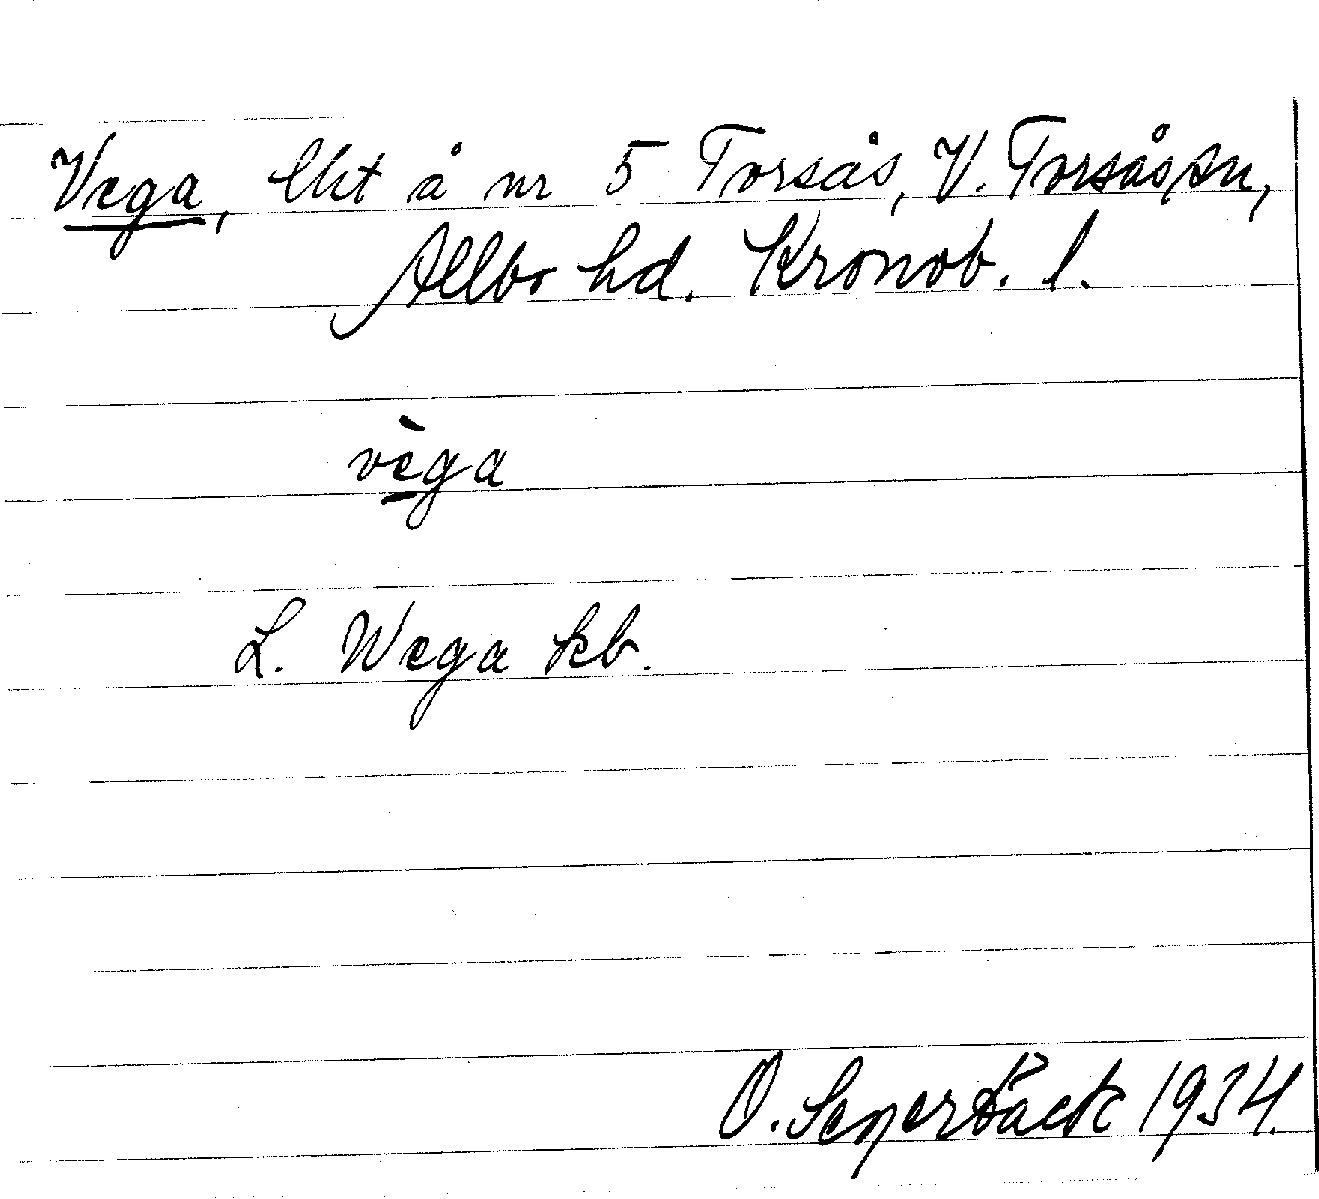 Vega, lht å nr 5 Torsås, V. Torsås sn,
Allbo hd. Kronob. l.
vèga
L. Wega kb.
O. 1934.